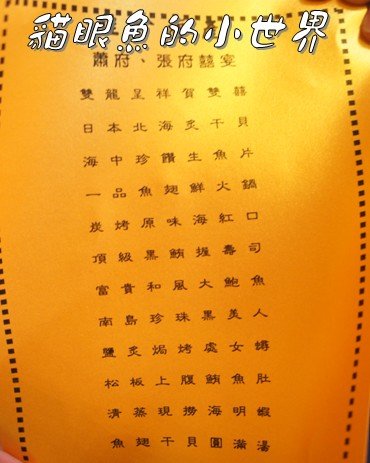 貓眼魚的小世界
蕭府、張府囍宴
雙龍呈祥賀雙囍
日本北海炙干貝
海中珍饌生魚片
一品魚翅鮮火鍋
炭烤原味海紅口
頂級黑鮪握壽司
富貴和風大鮑魚
南島珍珠黑美人
鹽炙焗烤處女蟳
松板上腹鮪魚肚
清蒸現撈海明蝦
魚翅干貝圓滿湯